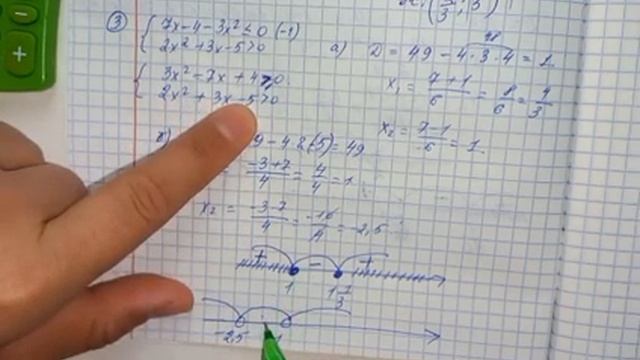 3
7x - 4 - 3x² ≤ 0 (-1)
2x² + 3x - 5 > 0
3x² - 7x + 4 ≥ 0
2x² + 3x - 5 > 0
а) D = 49 - 4·3·4 = 1
48
x₁ = (7+1)/6 = 8/6 = 4/3
x₂ = (7-1)/6 = 1
9 - 4·2·(-5) = 49
= (-3+7)/4 = 4/4 = 1
x₂ = (-3-7)/4 = -10/4 = -2,5
+ - +
1 1 1/3
-2,5